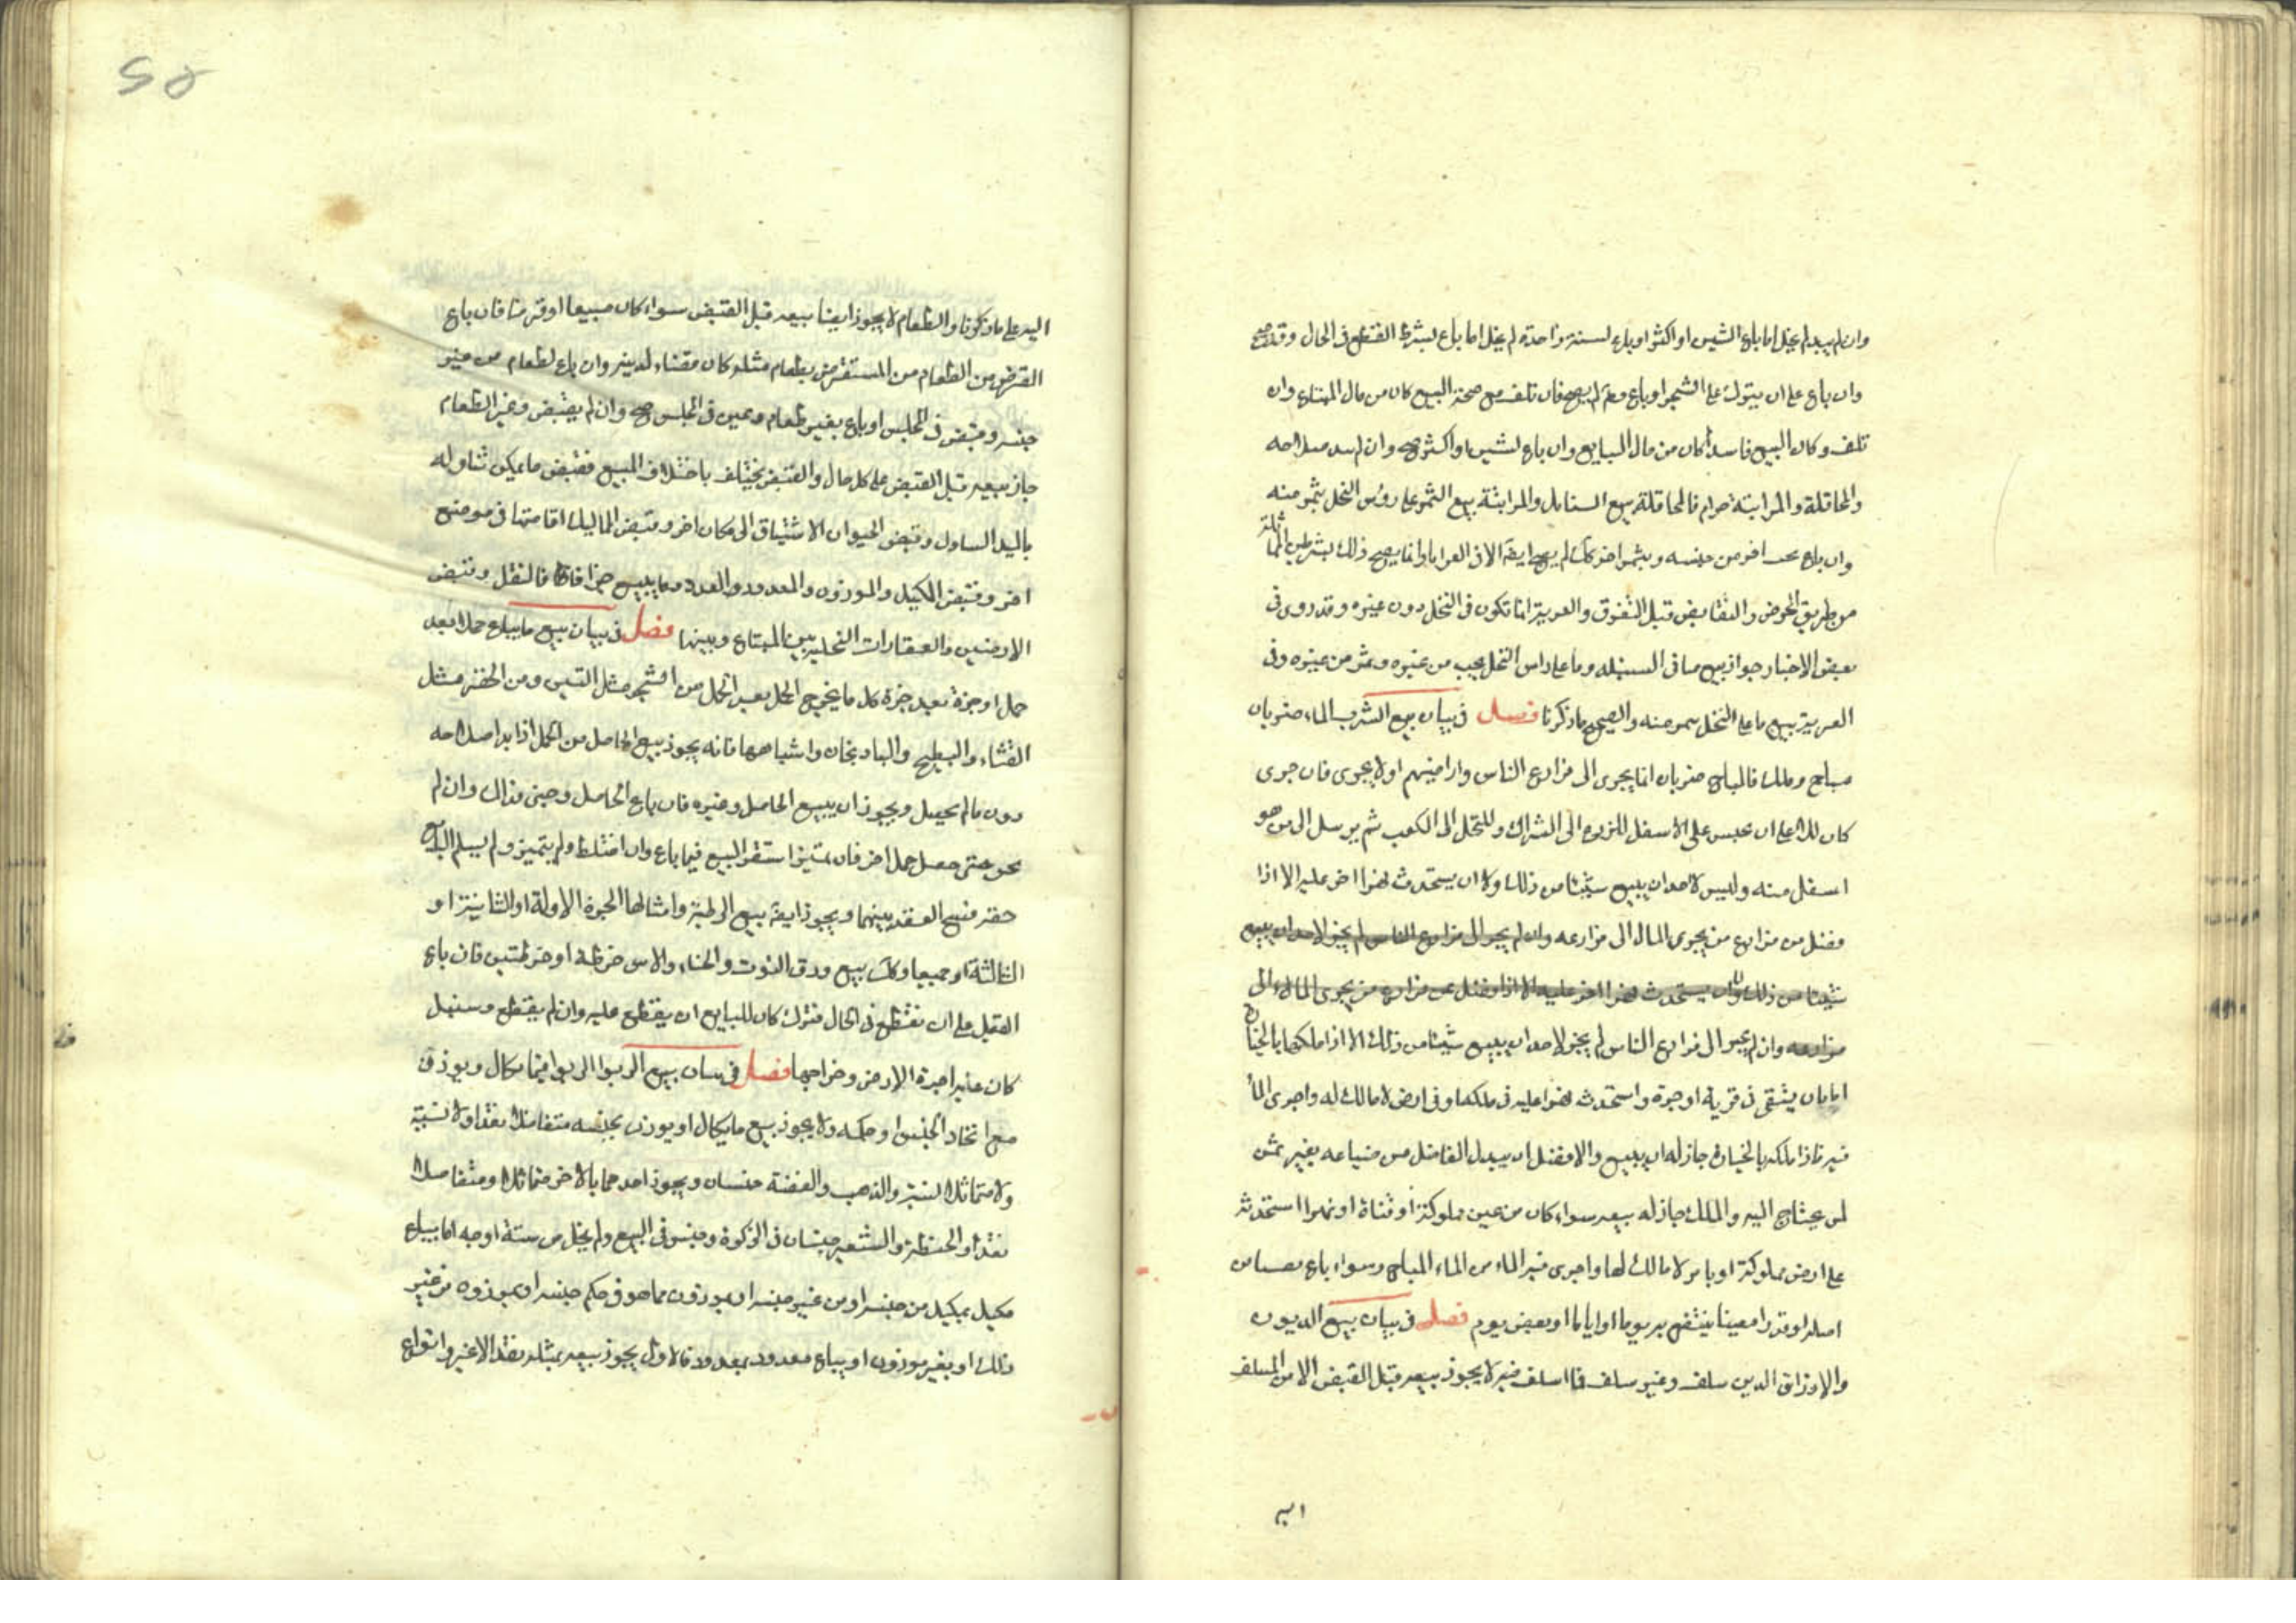 وان لم يبد لم يخل اما باع السنين او اكثر او باع لسنة واحدة لم يخل اما باع بشرط القطع في الحال وقد صح
وان باع على ان يترك على الشجر او باع لم يصح فان تلف مع صحة البيع كان من مال المبتاع وان
تلف وكان البيع فاسدا كان من مال البايع وان باع لسنين او اكثر صح وان لم يبد صلاحه
والمحاقلة والمزابنة حرام فالمحاقلة بيع السنابل والمزابنة بيع الثمر على روس النخل بثمر منه
وان باع اخر من جنسه وبثمر اخر لم يصح ايضا الا في العرايا وانما يصح ذلك بشرطين المماثلة
من طريق الخرص والتقابض قبل التفرق والعرية انما تكون في النخل دون غيره وقد روى في
بعض الاخبار جواز بيع ما في السنبله وما على راس النخل بحب من غيره وثمر من غيره وفى
العرية بيع ما على النخل بثمر منه والصحيح ما ذكرنا فصل في بيان بيع الشرب الماء ضربان
مباح وملك فالمباح ضربان اما يجرى الى مزارع الناس واراضيهم او لا يجرى فان جرى
كان للاعلى ان يحبس على الاسفل للزرع الى الشراك وللنخل الى الكعب ثم يرسل الى من هو
اسفل منه وليس لاحد ان يبيع شيئا من ذلك ولا ان يستحدث نهرا اخر عليه الا اذا
فضل من مزارع من يجرى الماء الى مزارعه وان لم يجر الى مزارع الناس لم يجز لاحد ان يبيع
شيئا من ذلك ولا ان يستحدث نهرا اخر عليه الا اذا فضل عن مزارع من يجرى الماء الى
مزارعه وان لم يجر الى مزارع الناس لم يجز لاحد ان يبيع شيئا من ذلك الا اذا ملكها بالحيازة
اما بان يستقى في قربة او جرة واستحدث نهرا عليه في ملكه او في ارض لا مالك له واجرى الماء
فيه فاذا ملكه بالحيازة جاز له ان يبيع والافضل ان يبدل الفاضل من ضياعه بغير ثمن
لمن يحتاج اليه والملك جاز له بيعه سواء كان من عين مملوكة او قناة او نهرا استحدثه
على ارض مملوكة او باير لا مالك لها واجرى فيه الماء من الماء المباح وسواء باع نصيبا من
اصله او قدرا معينا ينتفع به يوما او اياما او بعض يوم فصل في بيان بيع الديون
والارزاق الدين سلف وغير سلف فما اسلف فيه لا يجوز بيعه قبل القبض الا من المسلف
اليه
اليه على ما ذكرنا والطعام لا يجوز ايضا بيعه قبل القبض سواء كان مبيعا او قرضا فان باع
القرض من الطعام من المستقرض بطعام مثله كان قضاء لدينه وان باع لطعام من غير
جنسه وقبض في المجلس او باع بغير طعام وعين في المجلس صح وان لم يقبض وغير الطعام
جاز بيعه قبل القبض على كل حال والقبض يختلف باختلاف المبيع فقبض ما يمكن تناوله
باليد التناول وقبض الحيوان الاشتياق الى مكان اخر وقبض المماليك اقامتها في موضع
اخر وقبض المكيل والموزون والمعدود والعدد وما يبيع جزافا فالنقل وقبض
الارضين والعقارات التخلية بين المبتاع وبينها فصل في بيان بيع ما يباع حملا بعد
حمل او جزة بعد جزة كل ما يخرج الحمل بعد الحمل من الشجر مثل التين ومن الخضر مثل
القثاء والبطيخ والبادنجان واشباهها فانه يجوز بيع الحاصل من الحمل اذا بدا صلاحه
دون ما لم يحصل ويجوز ان يبيع الحاصل وغيره فان باع الحاصل وجنى فذاك وان لم
يجز حتى حصل حمل اخر فان تميز استقر البيع فيما باع وان اختلط ولم يتميز ولم يسلم البايع
حقه فسخ العقد بينهما ويجوز ايضا بيع الرطبة وامثالها الجزة الاولة او الثانية او
الثالثة او جميعا وكذلك بيع ورق التوت والحناء والاس خرطة او خرطتين فان باع
القصيل على ان يقطع في الحال فترك كان للبايع ان يقطع عليه وان لم يقطع وسنبل
كان عليه اجرة الارض وخراجها فصل في بيان بيع الربوا الربوا فيما يكال ويوزن
مع اتحاد الجنس او حكمه ولا يجوز بيع ما يكال او يوزن بجنسه متفاضلا نقدا ولا نسية
ولا متماثلا نسية والذهب والفضة جنسان ويجوز احدهما بالاخر متماثلا ومتفاضلا
نقدا والحنطة والشعير جنسان في الزكوة وجنس في البيع ولم يخل من ستة اوجه اما يباع
مكيل بمكيل من جنسه او من غير جنسه او بموزون مما هو في حكم جنسه او بموزون من غير
ذلك او بغير موزون او يباع معدود بمعدود فالاول يجوز بيعه بمثله نقدا لا غير وانواع